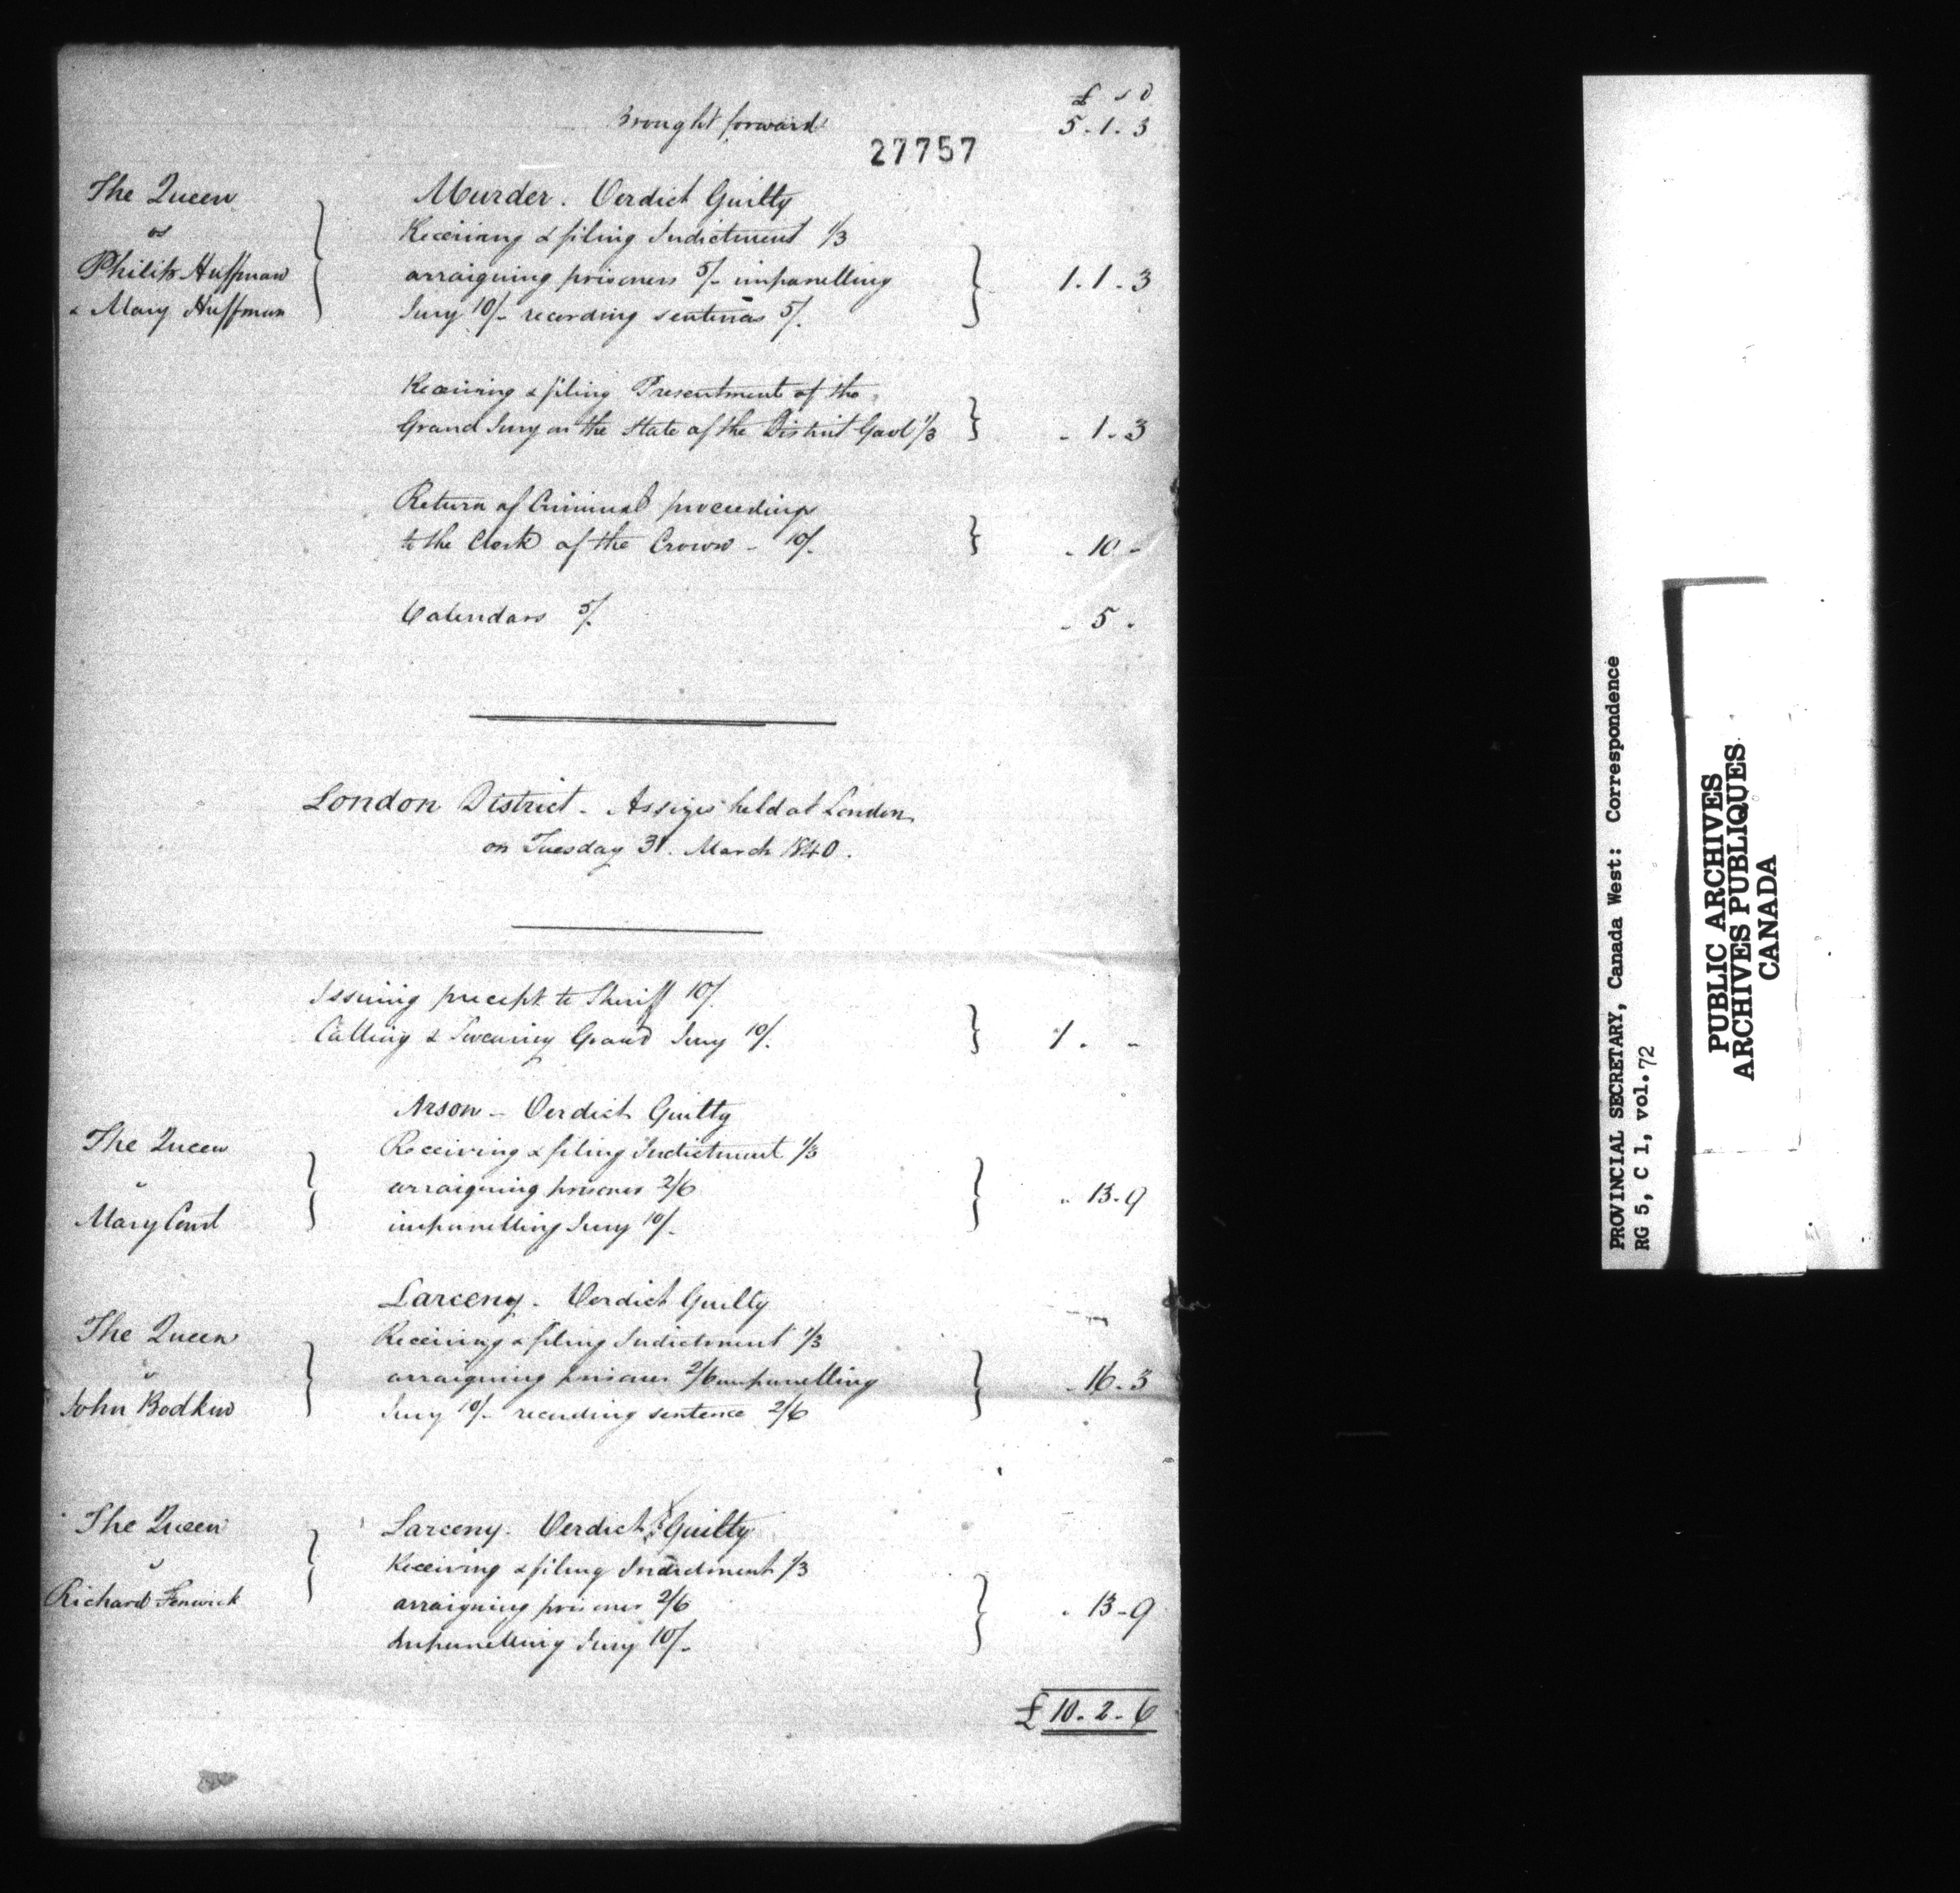 £ s d
Brought forward 5. 1. 3
27757
The Queen
vs
Philip Huffman
& Mary Huffman
Murder. Verdict Guilty
Receiving & filing Indictment 1/3
arraigning prisoners 5/- impanelling
Jury 10/- recording sentences 5/.
1. 1. 3
Receiving & filing Presentment of the
Grand Jury on the State of the District Gaol 1/3
. 1. 3
Return of Criminal proceedings
to the Clerk of the Crown - 10/.
. 10 -
Calendars 5/.
. 5 .
London District - Assizes held at London
on Tuesday 31. March 1840.
Issuing precept to Sheriff 10/.
Calling & Swearing Grand Jury 10/.
1. -
The Queen
"
Mary
Arson - Verdict Guilty
Receiving & filing Indictment 1/3
arraigning prisoner 2/6
impanelling Jury 10/-
" 13. 9
The Queen
"
John Bodkin
Larceny. Verdict Guilty
Receiving & filing Indictment 1/3
arraigning prisoner 2/6 impanelling
Jury 10/- recording sentence 2/6
. 16. 3
The Queen
v
Richard Fenwick
Larceny. Verdict Guilty
Receiving & filing Indictment 1/3
arraigning prisoner 2/6
Impanelling Jury 10/-
. 13 - 9
£ 10. 2. 6
PROVINCIAL SECRETARY, Canada West: Correspondence
RG 5, C 1, vol. 72
PUBLIC ARCHIVES
ARCHIVES PUBLIQUES
CANADA